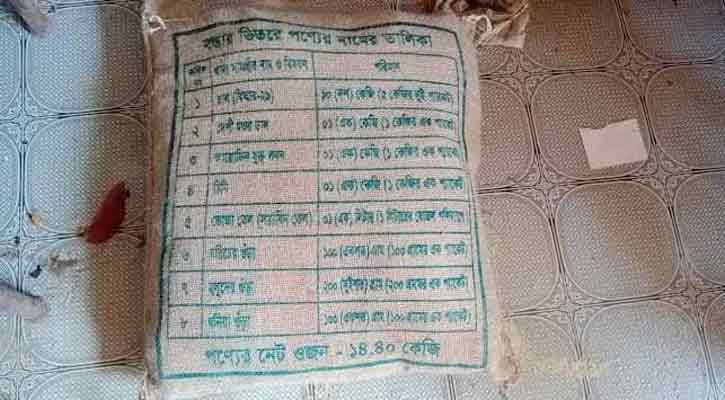 বস্তার ভিতরে পণ্যের নামের তালিকা
খাদ্য সামগ্রীর নাম ও বিবরণ পরিমাণ
১ চাল ১০ (দশ) কেজি (৫ কেজির দুই প্যাকেট)
২ দেশী মসুর ডাল ০১ (এক) কেজি (১ কেজির এক প্যাকেট)
৩ আয়োডিন যুক্ত লবন ০১ (এক) কেজি (১ কেজির এক প্যাকেট)
৪ চিনি ০১ (এক) কেজি (১ কেজির এক প্যাকেট)
৫ ভোজ্য তেল (সয়াবিন তেল) ০১ (এক) লিটার (১ লিটারের বোতল
৬ মরিচের গুঁড়া ১০০ (একশত) গ্রাম (১০০ গ্রামের এক প্যাকেট)
৭ হলুদের গুঁড়া ২০০ (দুইশত) গ্রাম (২০০ গ্রামের এক প্যাকেট)
৮ ধনিয়া গুঁড়া ১০০ (একশত) গ্রাম (১০০ গ্রামের এক প্যাকেট)
পণ্যের নেট ওজন - ১৪.৪০ কেজি